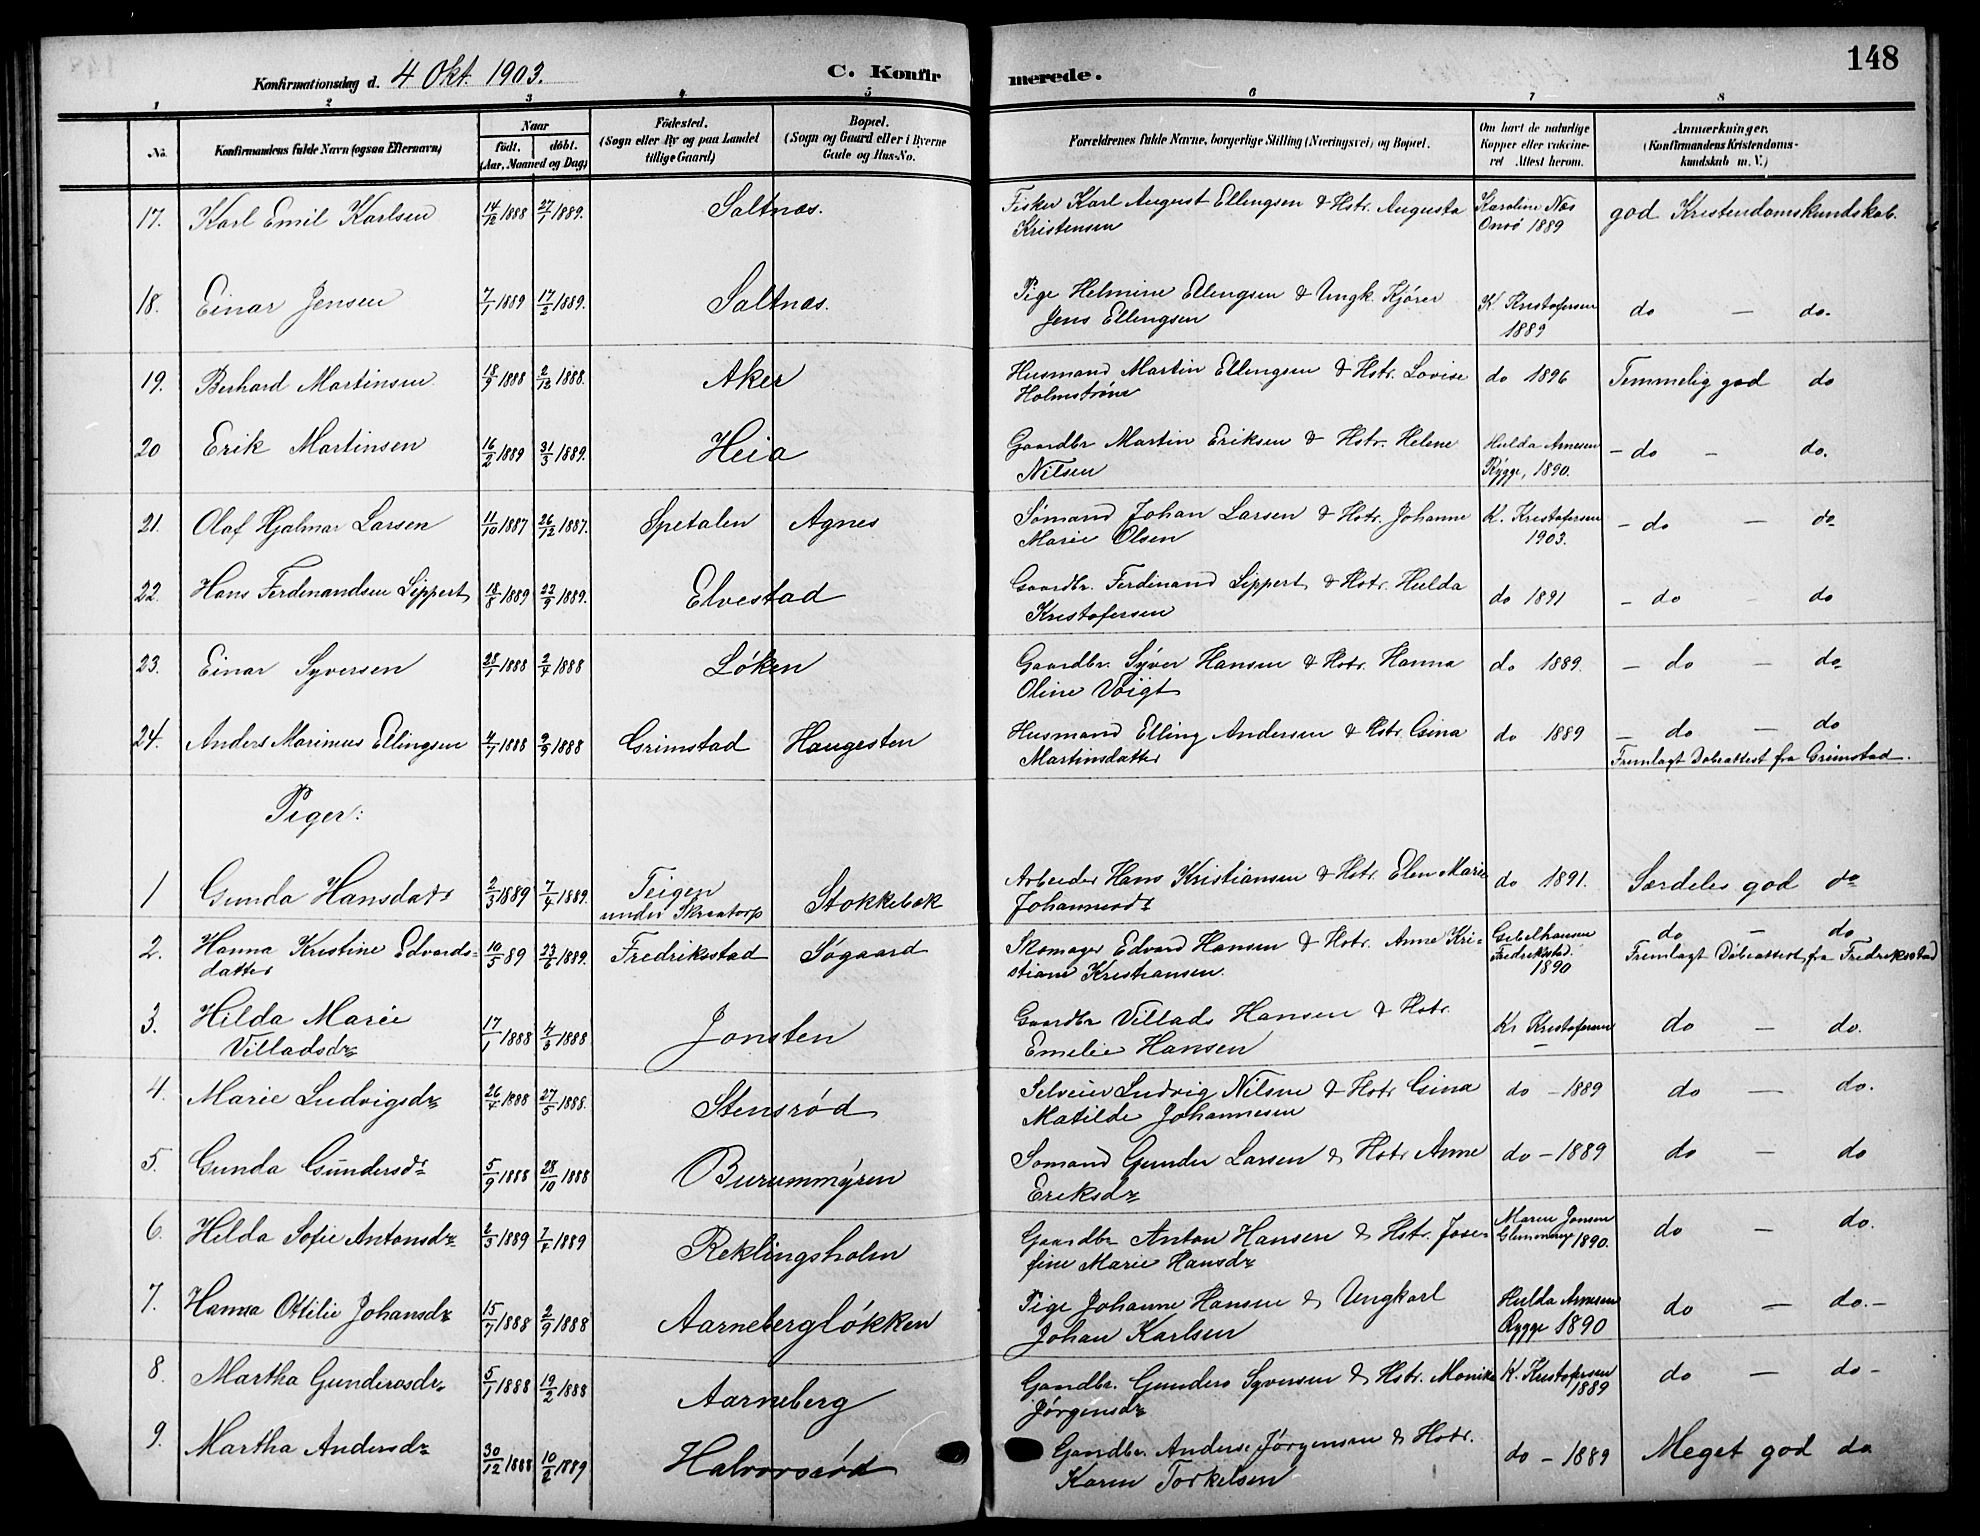 148
Konfirmationsdag d. 4 Okt. 1903.
C. Konfirmerede.
1 2 3 4 5 6 7 8
No.
Konfirmandens fulde Navn (ogsaa Efternavn)
Naar
født, døbt.
(Aar, Maaned og Dag)
Fødested.
(Sogn eller By og paa Landet
tillige Gaard)
Bopæl.
(Sogn og Gaard eller i Byerne
Gade og Hus-No.
Forældrenes fulde Navne, borgerlige Stilling (Næringsvei) og Bopæl.
Om havt de naturlige
Kopper eller vakcine-
ret Attest herom.
Anmærkninger.
(Konfirmandens Kristendoms-
kundskab m. V.)
17. Karl Emil Karlsen 14/12 1888 27/1 1889. Saltnæs. Fisker Karl August Ellingsen & Hstr. Augusta Karoline Næs god Kristendomskundskab.
Kristensen Onsø 1889
18. Einar Jensen 7/1 1889 17/2 1889. Saltnæs. Pige Helmine Ellingsen & Ungk. Kjører K. Kristofersen do — do.
Jens Ellingsen 1889
19. Berhard Martinsen 18/9 1888 2/12 1888. Aker Husmand Martin Ellingsen & Hstr. Lovise do 1896 Temmelig god do
Holmstrøm
20 Erik Martinsen 16/2 1889 31/3 1889. Heia Gaardbr Martin Eriksen & Hstr. Helene Hulda Arnesen – do – do.
Nilsen Rygge, 1890.
21. Olaf Hjalmar Larsen 11/10 1887 26/12 1887. Spetalen Agnes Sømand Johan Larsen & Hstr. Johanne K. Kristofersen – do – do
Marie Olsen 1903.
22. Hans Ferdinandsen Lippert 18/8 1889 22/9 1889. Elvestad Gaardbr. Ferdinand Lippert & Hstr. Hulda do 1891 – do – do
Kristofersen
23. Einar Syversen 28/1 1888 2/4 1888 Løken Gaardbr. Syver Hansen & Hstr. Hanna do 1889. – do – do
Oline Voigt
24. Anders Marinius Ellingsen 4/1 1888 9/9 1888 Grimstad Haugesten Husmand Elling Andersen & Hstr Gina do 1889 – do – do
Martinsdatter Fremlagt Dåbsattest fra Grimstad.
Piger:
1 Gunda Hansdatr 2/3 1889 7/4 1889. Teigen Stokkebæk Arbeider Hans Kristiansen & Hstr. Elen Marie do 1891. Særdeles god do
under Skraatorp Johannesdr
2. Hanna Kristine Edvards- 10/5 89 23/6 1889. Fredriksstad Søgaard Skomager Edvard Hansen & Hstr. Anne Kri- Gebelhausen do – do
datter stiane Kristiansen. Fredriksstad. Fremlagt Dåbsattest fra Fredriksstad
1890
3. Hilda Marie 17/1 1888 4/3 1888 Jonsten Gaardbr Villads Hansen & Hstr. Kr Kristofersen do – do.
Villadsdr Emelie Hansen –
4. Marie Ludvigsdr 26/4 1888 27/5 1888. Stensrød Selveier Ludvig Nilsen & Hstr Gina do – 1889 do – do.
Matilde Johannesen
5. Gunda Gundersdr 5/9 1888 28/10 1888 Burummyren Sømand Gunder Larsen & Hstr Anne do – 1889 do – do
Eriksdr
6. Hilda Sofie Antonsdr 2/3 1889 7/4 1889 Reklingsholm Gaardbr Anton Hansen & Hstr. Jose- Maren Jonsen do – do.
fine Marie Hansdr 1890.
7. Hanna Ottilie Johansdr 15/7 1888 2/9 1888 Aarnebergløkken Pige Johanne Hansen & Ungkarl Hulda Arnesen do – do. –
Johan Karlsen Rygge 1890
8. Martha Gundersdr. 5/1 1888 19/2 1888 Aarneberg Gaardbr. Gunders Syversen & Hstr. Monika K. Kristofersen do – do –
Jørgensdr 1889
9. Martha Andersdr 30/12 1888 10/2 1889 Halvorsrød Gaardbr. Anders Jørgensen & Hstr. do – 1889 Meget god do
Karen Torkelsen